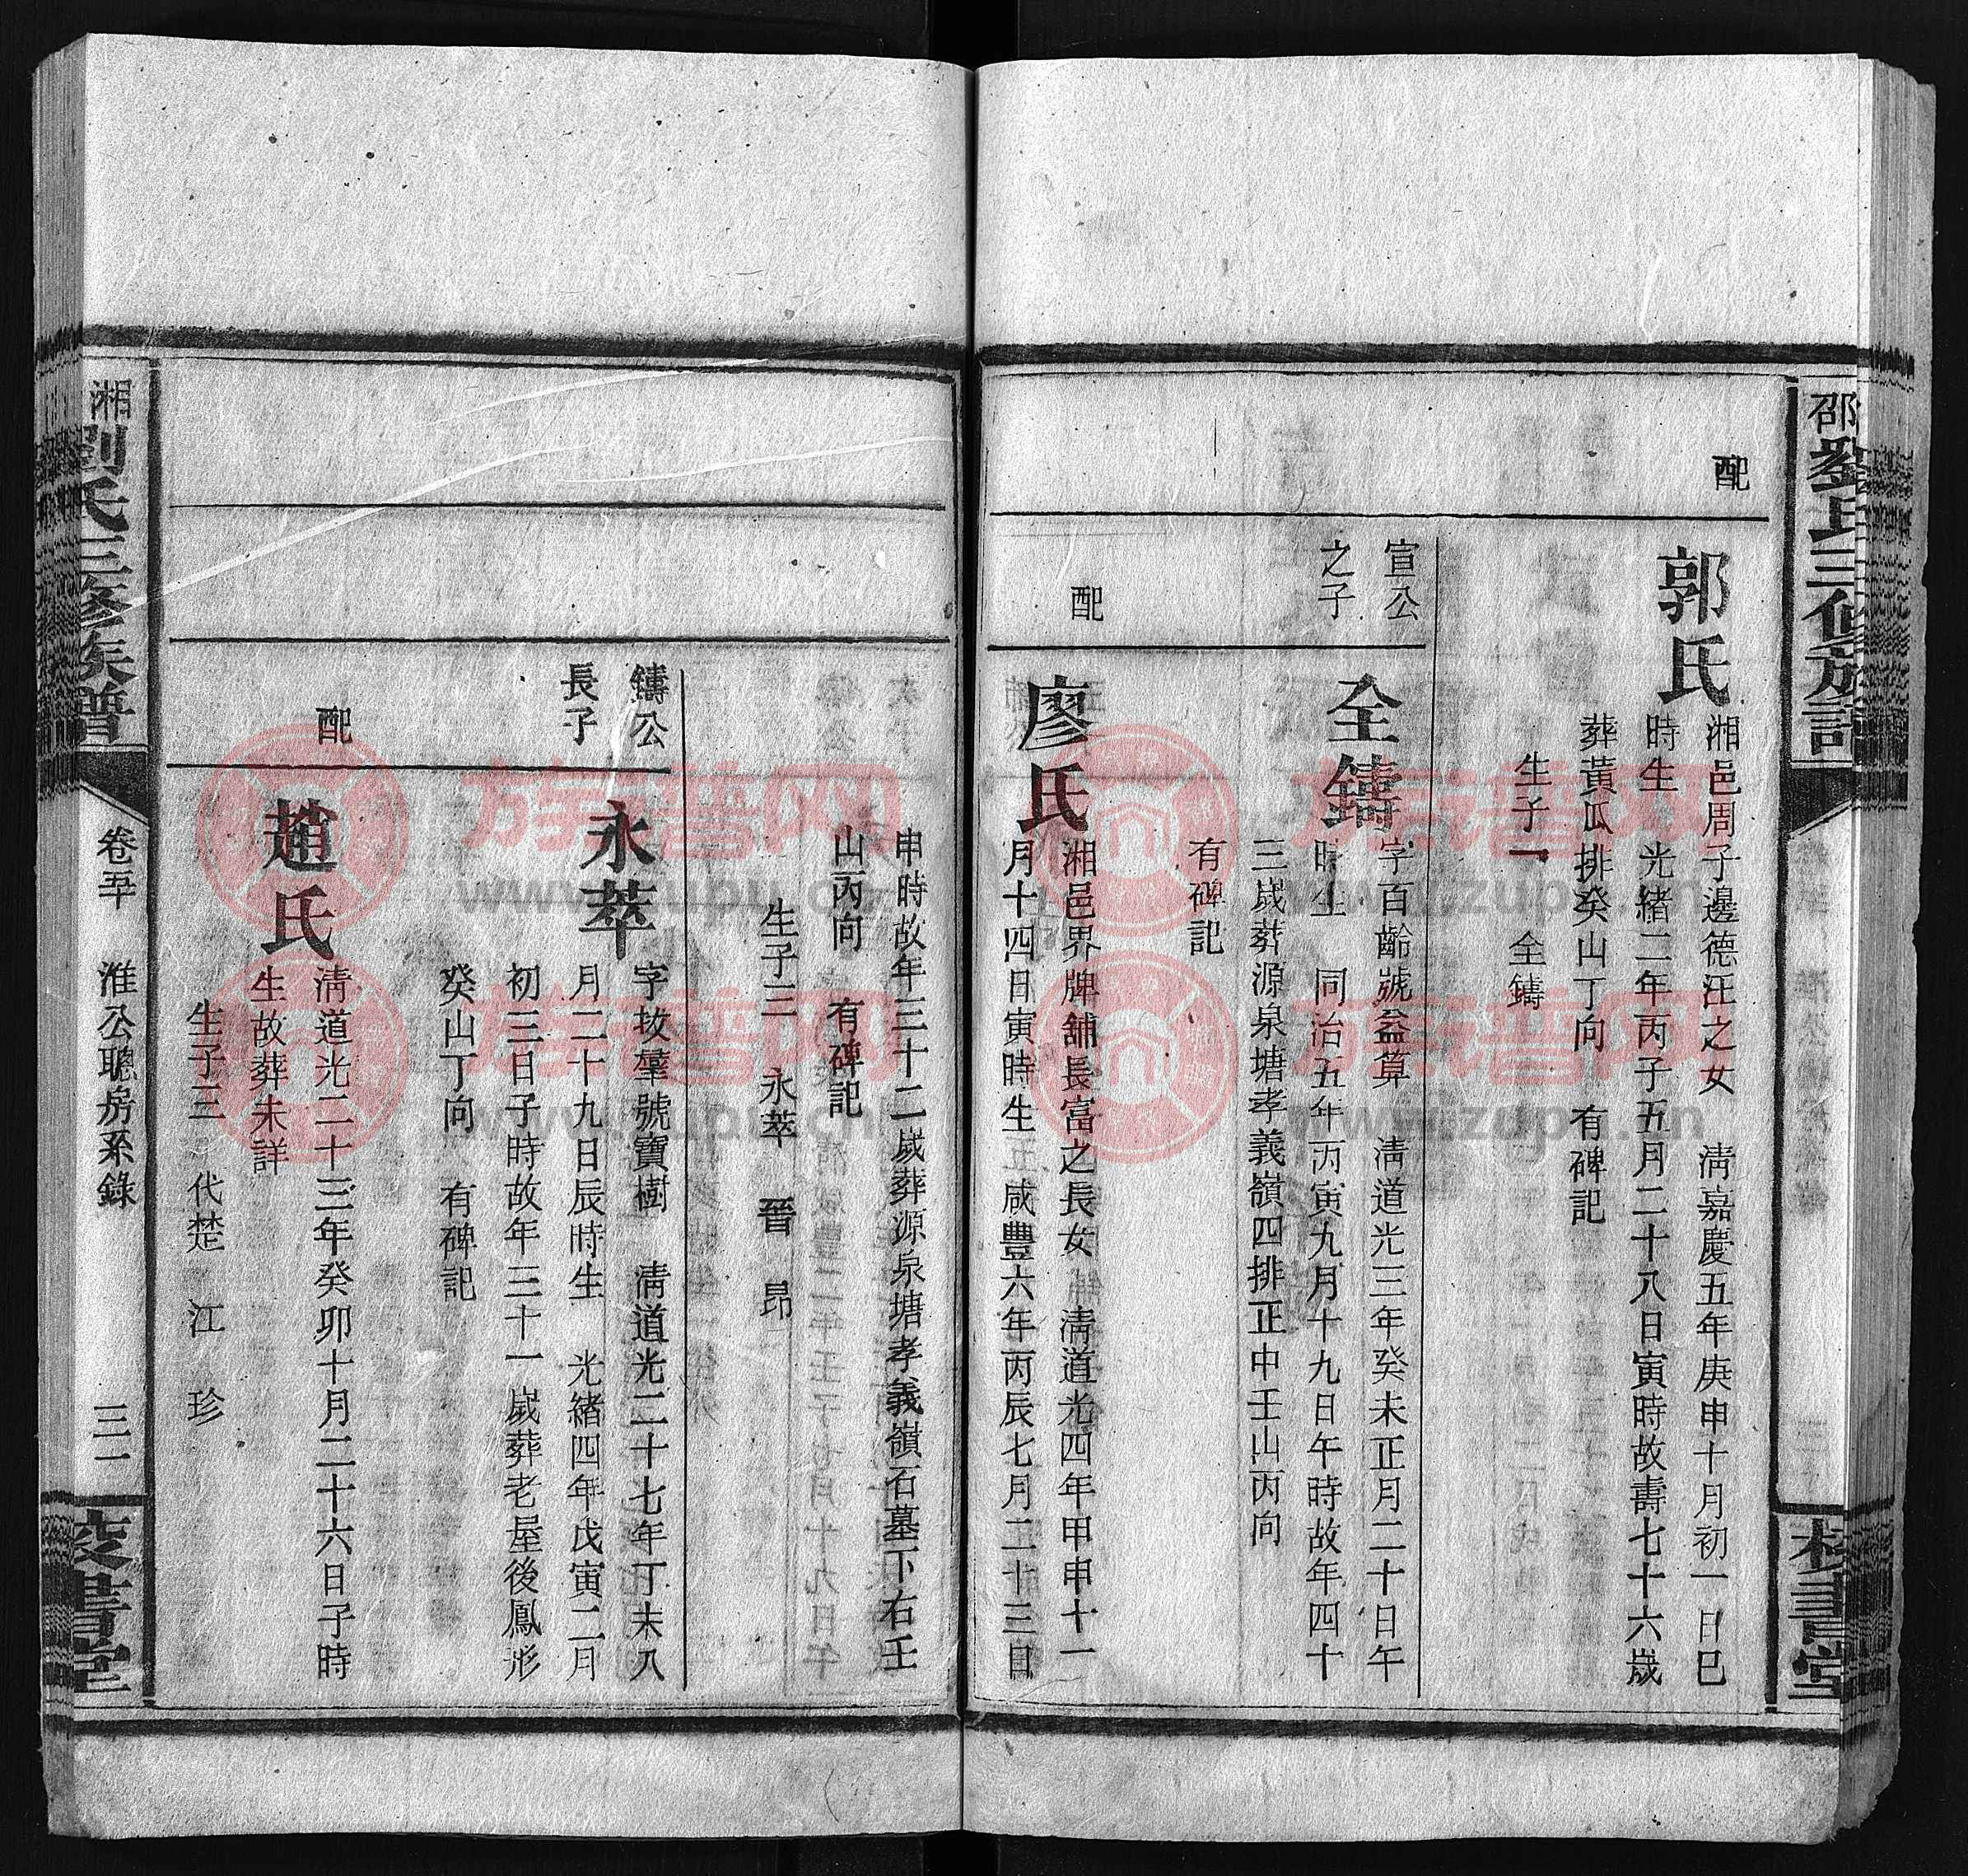 邵劉氏三修族譜
校書堂
配
郭氏
湘邑周子邊德汪之女 淸嘉慶五年庚申十月初一日巳
時生 光緒二年丙子五月二十八日寅時故壽七十六歲
葬黃瓜排癸山丁向 有碑記
生子一 全鑄
宣公
之子
全鑄
字百齡號益算 淸道光三年癸未正月二十日午
時生 同治五年丙寅九月十九日午時故年四十
三歲葬源泉塘孝義嶺四排正中壬山丙向
有碑記
配
廖氏
湘邑界牌鋪長富之長女 淸道光四年甲申十一
月十四日寅時生 咸豐六年丙辰七月二十三日
申時故年三十二歲葬源泉塘孝義嶺石墓下右壬
山丙向 有碑記
生子三 永萃 晉 昂
鑄公
長子
永萃
字拔羣號寶樹 淸道光二十七年丁未八
月二十九日辰時生 光緒四年戊寅二月
初三日子時故年三十一歲葬老屋後鳳形
癸山丁向 有碑記
配
趙氏
淸道光二十三年癸卯十月二十六日子時
生故葬未詳
生子三 代楚 江 珍
湘劉氏三修族譜
卷五 淮公聰房系錄 三一
校書堂
族譜网
www.zupu.cn
族譜网
www.zupu.cn
族譜网
www.zupu.cn
族譜网
www.zupu.cn